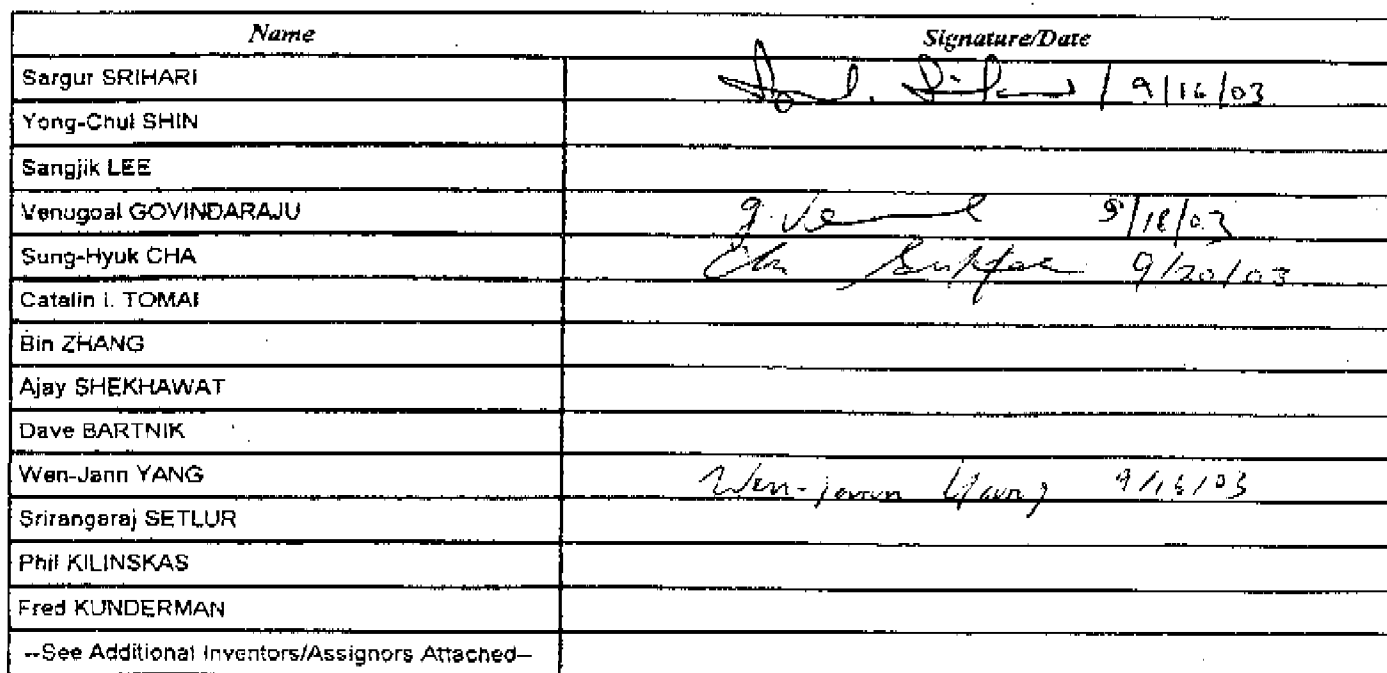 Name Signature/Date
Sargur SRIHARI 9/16/03
Yong-Chul SHIN
Sangjik LEE
Venugoal GOVINDARAJU 9/18/03
Sung-Hyuk CHA 9/20/03
Catalin I. TOMAI
Bin ZHANG
Ajay SHEKHAWAT
Dave BARTNIK
Wen-Jann YANG Wen-Jann Yang 9/16/03
Srirangaraj SETLUR
Phil KILINSKAS
Fred KUNDERMAN
--See Additional Inventors/Assignors Attached--